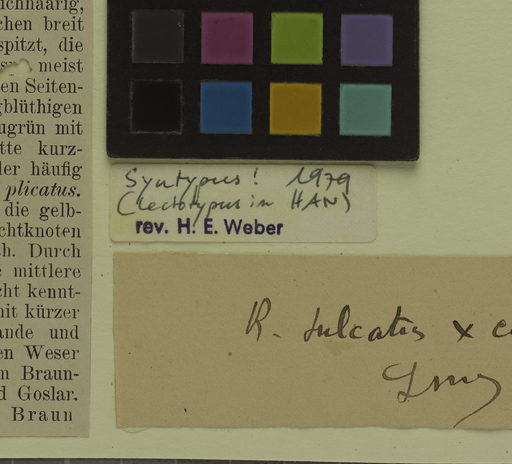 ichhaarig,
chen breit
spitzt, die
meist
en Seiten-
gblüthigen
ugrün mit
tte kurz-
ler häufig
plicatus.
die gelb-
chtknoten
h. Durch
mittlere
cht kennt-
nit kürzer
ande und
en Weser
m Braun-
d Goslar.
Braun
Syntypus! 1979
(Lectotypus in HAN)
rev. H. E. Weber
R. sulcatus x c